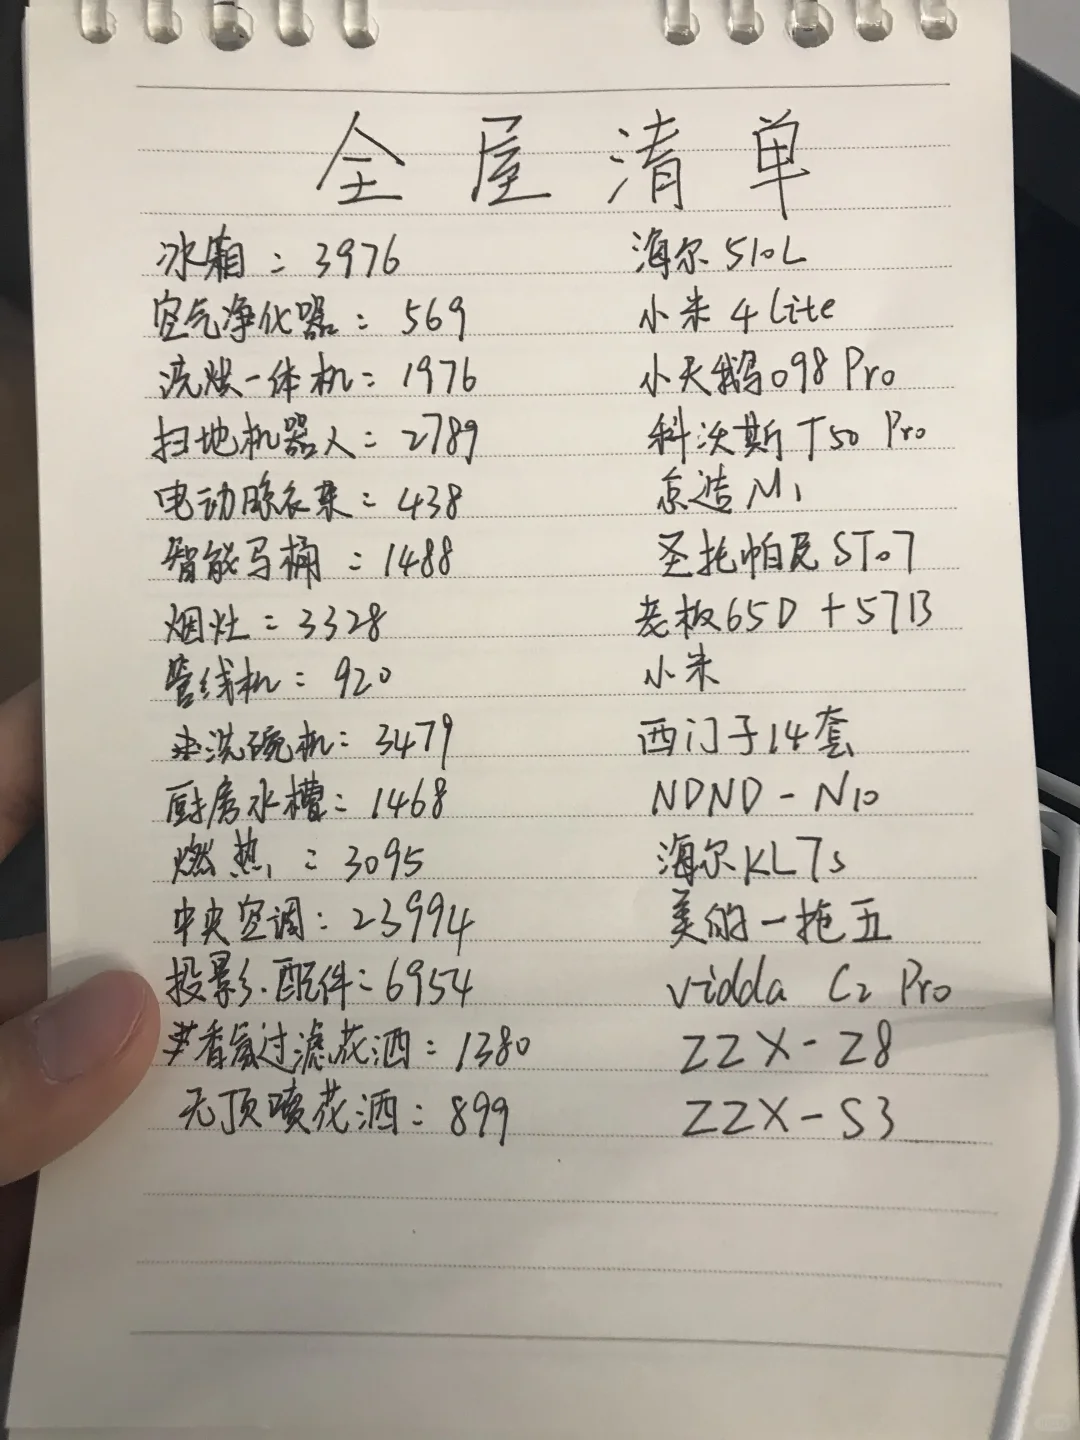 全屋清单
冰箱：3976 海尔510L
空气净化器：569 小米4 Lite
洗烘一体机：1976 小天鹅098 Pro
扫地机器人：2789 科沃斯T50 Pro
电动晾衣架：438 京造M1
智能马桶：1488 圣托帕尼ST07
烟灶：3328 老板65D+57B
管线机：920 小米
洗碗机：3479 西门子14套
厨房水槽：1468 NDND-N10
燃热：3095 海尔KL7s
中央空调：23994 美的一拖五
投影.配件：6954 vidda C2 Pro
香氛过滤花洒：1380 ZZX-Z8
无顶喷花洒：899 ZZX-S3